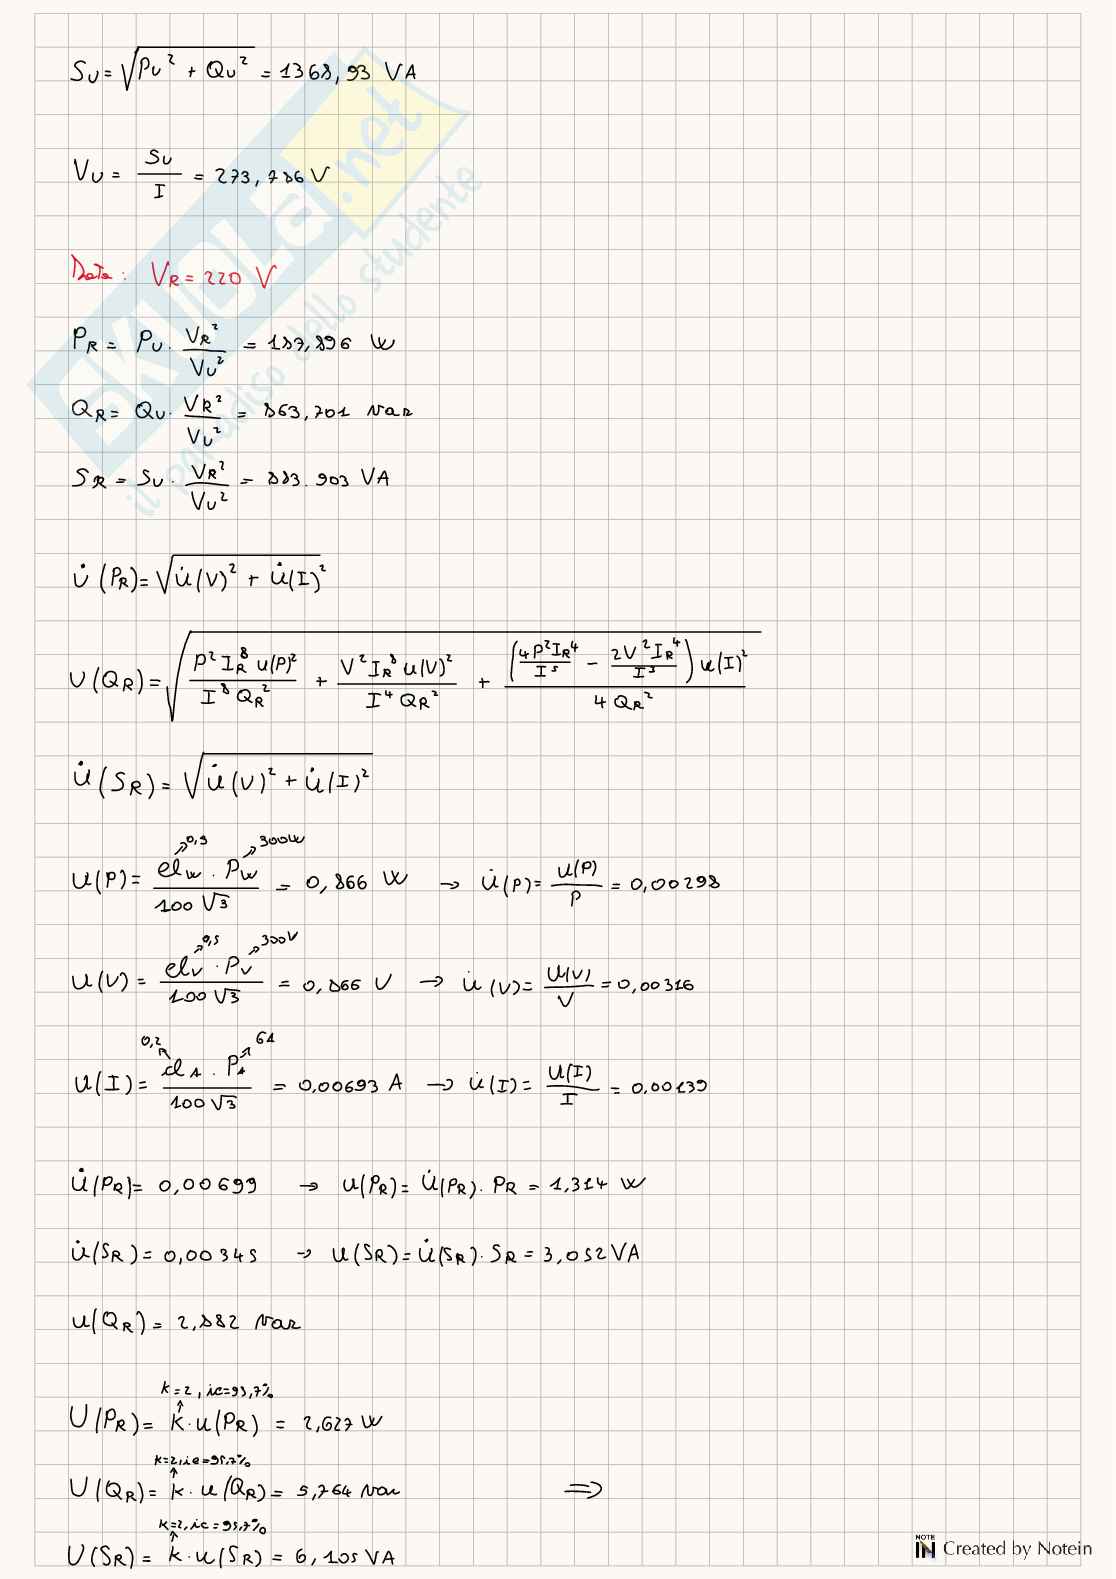 SU = √(PU² + QU²) = 1368,93 VA
VU = SU / I = 273,786 V
Data: VR = 220 V
PR = PU · VR² / VU² = 187,896 W
QR = QU · VR² / VU² = 863,701 var
SR = SU · VR² / VU² = 883.903 VA
u̇(PR) = √(u̇(V)² + u̇(I)²)
U(QR) = √(P² IR⁸ u(P)² / I⁸ QR² + V² IR⁸ u(V)² / I⁴ QR² + (4P² IR⁴ / I⁵ - 2V² IR⁴ / I³) u(I)² / 4 QR²)
u̇(SR) = √(u̇(V)² + u̇(I)²)
0,5 300W
u(P) = clW · PW / 100 √3 = 0,866 W → u̇(P) = u(P) / P = 0,00298
0,5 300V
u(V) = clV · PV / 100 √3 = 0,866 V → u̇(V) = u(V) / V = 0,00316
0,2 6A
u(I) = clA · PA / 100 √3 = 0,00693 A → u̇(I) = u(I) / I = 0,00139
u̇(PR) = 0,00699 → u(PR) = u̇(PR) · PR = 1,314 W
u̇(SR) = 0,00345 → u(SR) = u̇(SR) · SR = 3,052 VA
u(QR) = 2,882 var
k=2, ic=95,7%
U(PR) = k · u(PR) = 2,627 W
k=2, ic=95,7%
U(QR) = k · u(QR) = 5,764 var ⇒
k=2, ic=95,7%
U(SR) = k · u(SR) = 6,105 VA
SKUOLA.net
il paradiso dello studente
NOTE IN Created by Notein